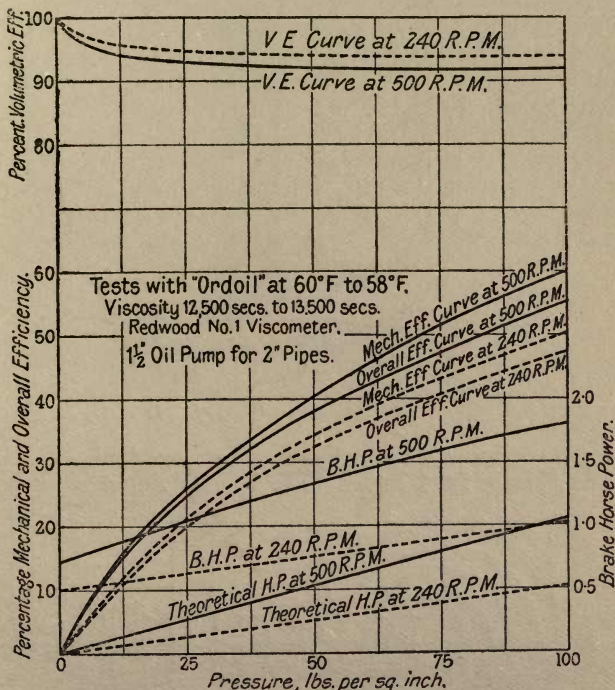 Percent. Volumetric Eff.
100
90
80
V.E. Curve at 240 R.P.M.
V.E. Curve at 500 R.P.M.
Percentage Mechanical and Overall Efficiency.
60
50
40
30
20
10
0
Tests with "Ordoil" at 60°F to 58°F.
Viscosity 12,500 secs. to 13,500 secs.
Redwood No.1 Viscometer.
1½" Oil Pump for 2" Pipes.
Mech. Eff. Curve at 500 R.P.M.
Overall Eff. Curve at 500 R.P.M.
Mech. Eff. Curve at 240 R.P.M.
Overall Eff. Curve at 240 R.P.M.
B.H.P. at 500 R.P.M.
B.H.P. at 240 R.P.M.
Theoretical H.P. at 500 R.P.M.
Theoretical H.P. at 240 R.P.M.
2.0
1.5
1.0
0.5
Brake Horse Power.
0
25
50
75
100
Pressure, lbs. per sq. inch.